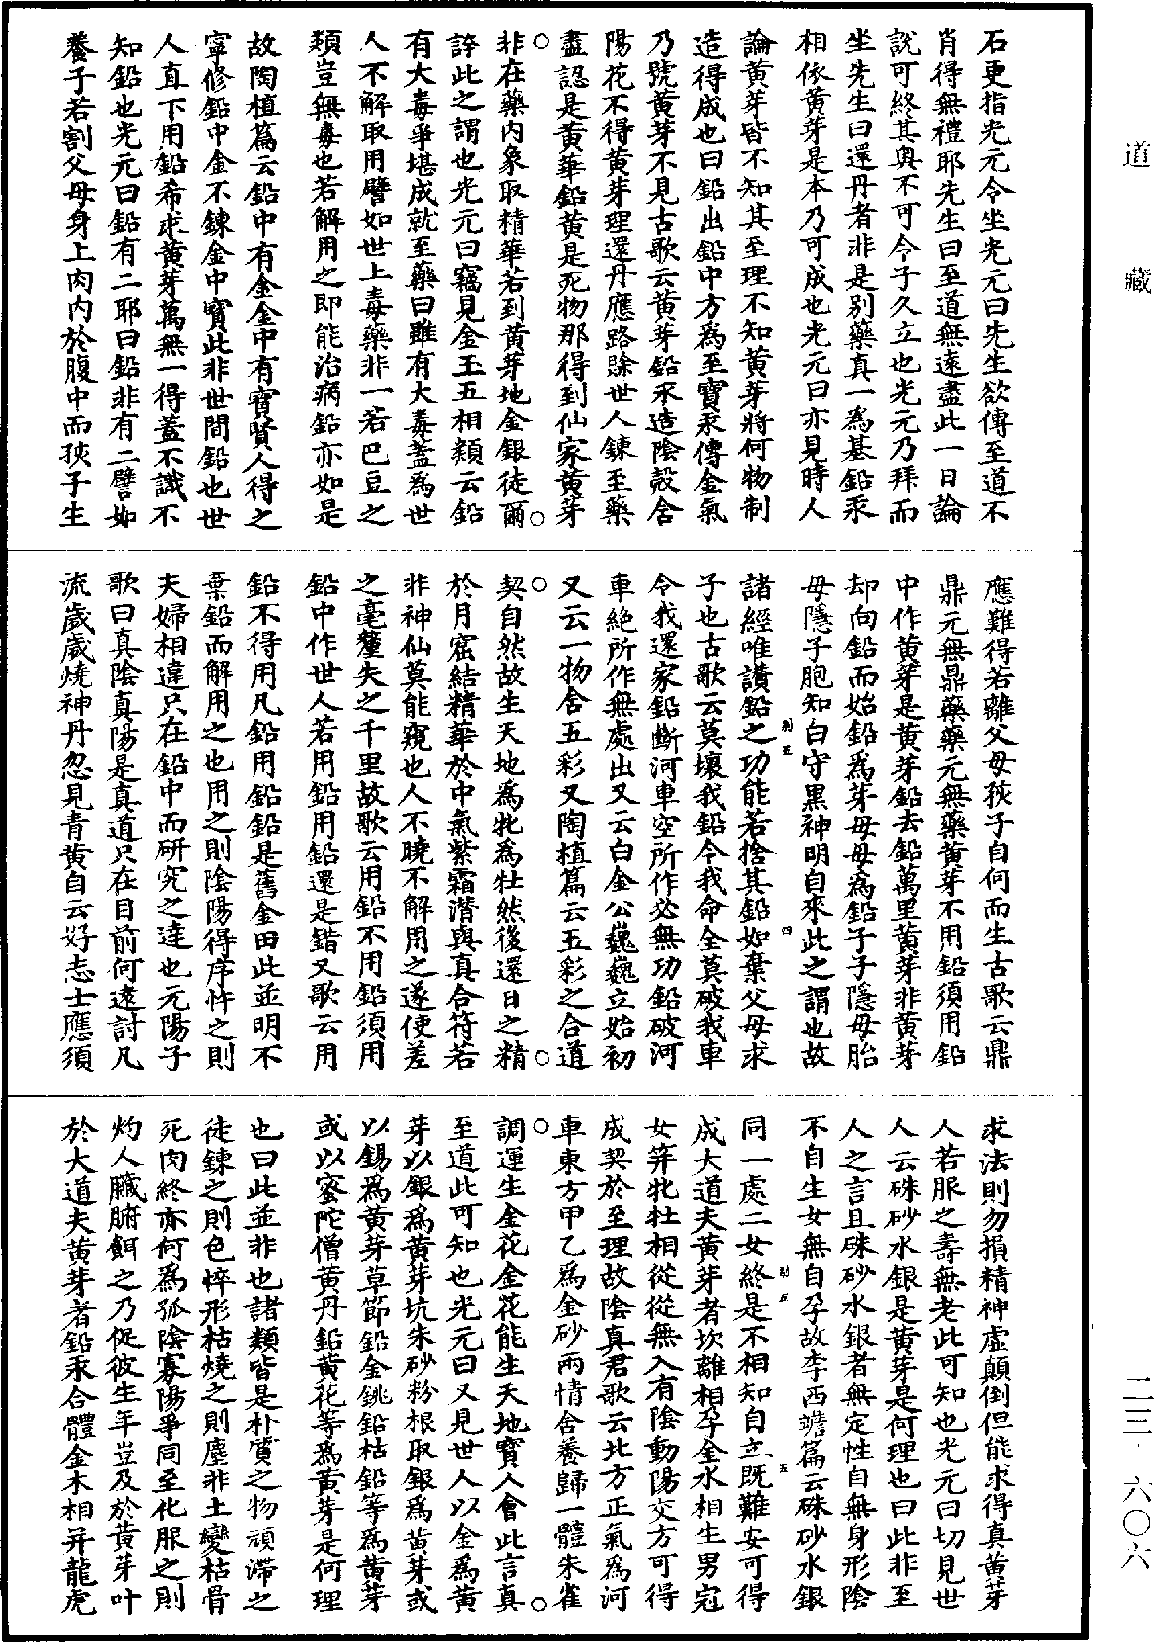 道藏
二三·六〇六
石更指光元令坐光元曰先生欲傳至道不
肖得無禮耶先生曰至道無遠盡此一日論
說可終其奧不可令子久立也光元乃拜而
坐先生曰還丹者非是別藥真一為基鉛汞
相依黃芽是本乃可成也光元曰亦見時人
論黃芽皆不知其至理不知黃芽將何物制
造得成也曰鉛出鉛中方為至寶汞傳金氣
乃號黃芽不見古歌云黃芽鉛汞造陰殼含
陽花不得黃芽理還丹應路賒世人鍊至藥
盡認是黃華鉛黃是死物那得到仙家黃芽
非在藥內象取精華若到黃芽地金銀徒爾
誶此之謂也光元曰竊見金玉五相類云鉛
有大毒爭堪成就至藥曰雖有大毒蓋為世
人不解取用譬如世上毒藥非一若巴豆之
類豈無毒也若解用之即能治病鉛亦如是
故陶植篇云鉛中有金金中有寶賢人得之
寧修鉛中金不鍊金中寶此非世間鉛也世
人直下用鉛希求黃芽萬無一得蓋不識不
知鉛也光元曰鉛有二耶曰鉛非有二譬如
養子若割父母身上肉內於腹中而孩子生
應難得若離父母孩子自何而生古歌云鼎
鼎元無鼎藥藥元無藥黃芽不用鉛須用鉛
中作黃芽是黃芽鉛去鉛萬里黃芽非黃芽
却向鉛而始鉛為芽母母為鉛子子隱母胎
母隱子胞知白守黑神明自來此之謂也故
諸經唯讚鉛之功能若捨其鉛如棄父母求
子也古歌云莫壞我鉛令我命全莫破我車
令我還家鉛斷河車空所作必無功鉛破河
車絕所作無處出又云白金公巍巍立始初
又云一物含五彩又陶植篇云五彩之合道
契自然故生天地為牝為牡然後還日之精
於月窟結精華於中氣紫霜潛與真合符若
非神仙莫能窺也人不曉不解用之遂使差
之毫釐失之千里故歌云用鉛不用鉛須用
鉛中作世人若用鉛用鉛還是錯又歌云用
鉛不得用凡鉛用鉛鉛是舊金田此並明不
棄鉛而解用之也用之則陰陽得序忤之則
夫婦相違只在鉛中而研究之達也元陽子
歌曰真陰真陽是真道只在目前何遠討凡
流歲歲燒神丹忽見青黃自云好志士應須
求法則勿損精神虛顛倒但能求得真黃芽
人若服之壽無老此可知也光元曰切見世
人云硃砂水銀是黃芽是何理也曰此非至
人之言且硃砂水銀者無定性自無身形陰
不自生女無自孕故李西蟾篇云硃砂水銀
同一處二女終是不相知自立既難安可得
成大道夫黃芽者坎離相孕金水相生男冠
女筓牝牡相從從無入有陰動陽交方可得
成契於至理故陰真君歌云北方正氣為河
車東方甲乙為金砂兩情含養歸一體朱雀
調運生金花金花能生天地寶人會此言真
至道此可知也光元曰又見世人以金為黃
芽以銀為黃芽坑朱砂粉根取銀為黃芽或
以錫為黃芽草節鉛金銚鉛枯鉛等為黃芽
或以蜜陀僧黃丹鉛黃花等為黃芽是何理
也曰此並非也諸類皆是朴質之物頑滯之
徒鍊之則色悴形枯燒之則塵非土變枯骨
死肉終亦何為孤陰寡陽爭同至化服之則
灼人臟腑餌之乃促彼生年豈及於黃芽叶
於大道夫黃芽者鉛汞合體金木相并龍虎